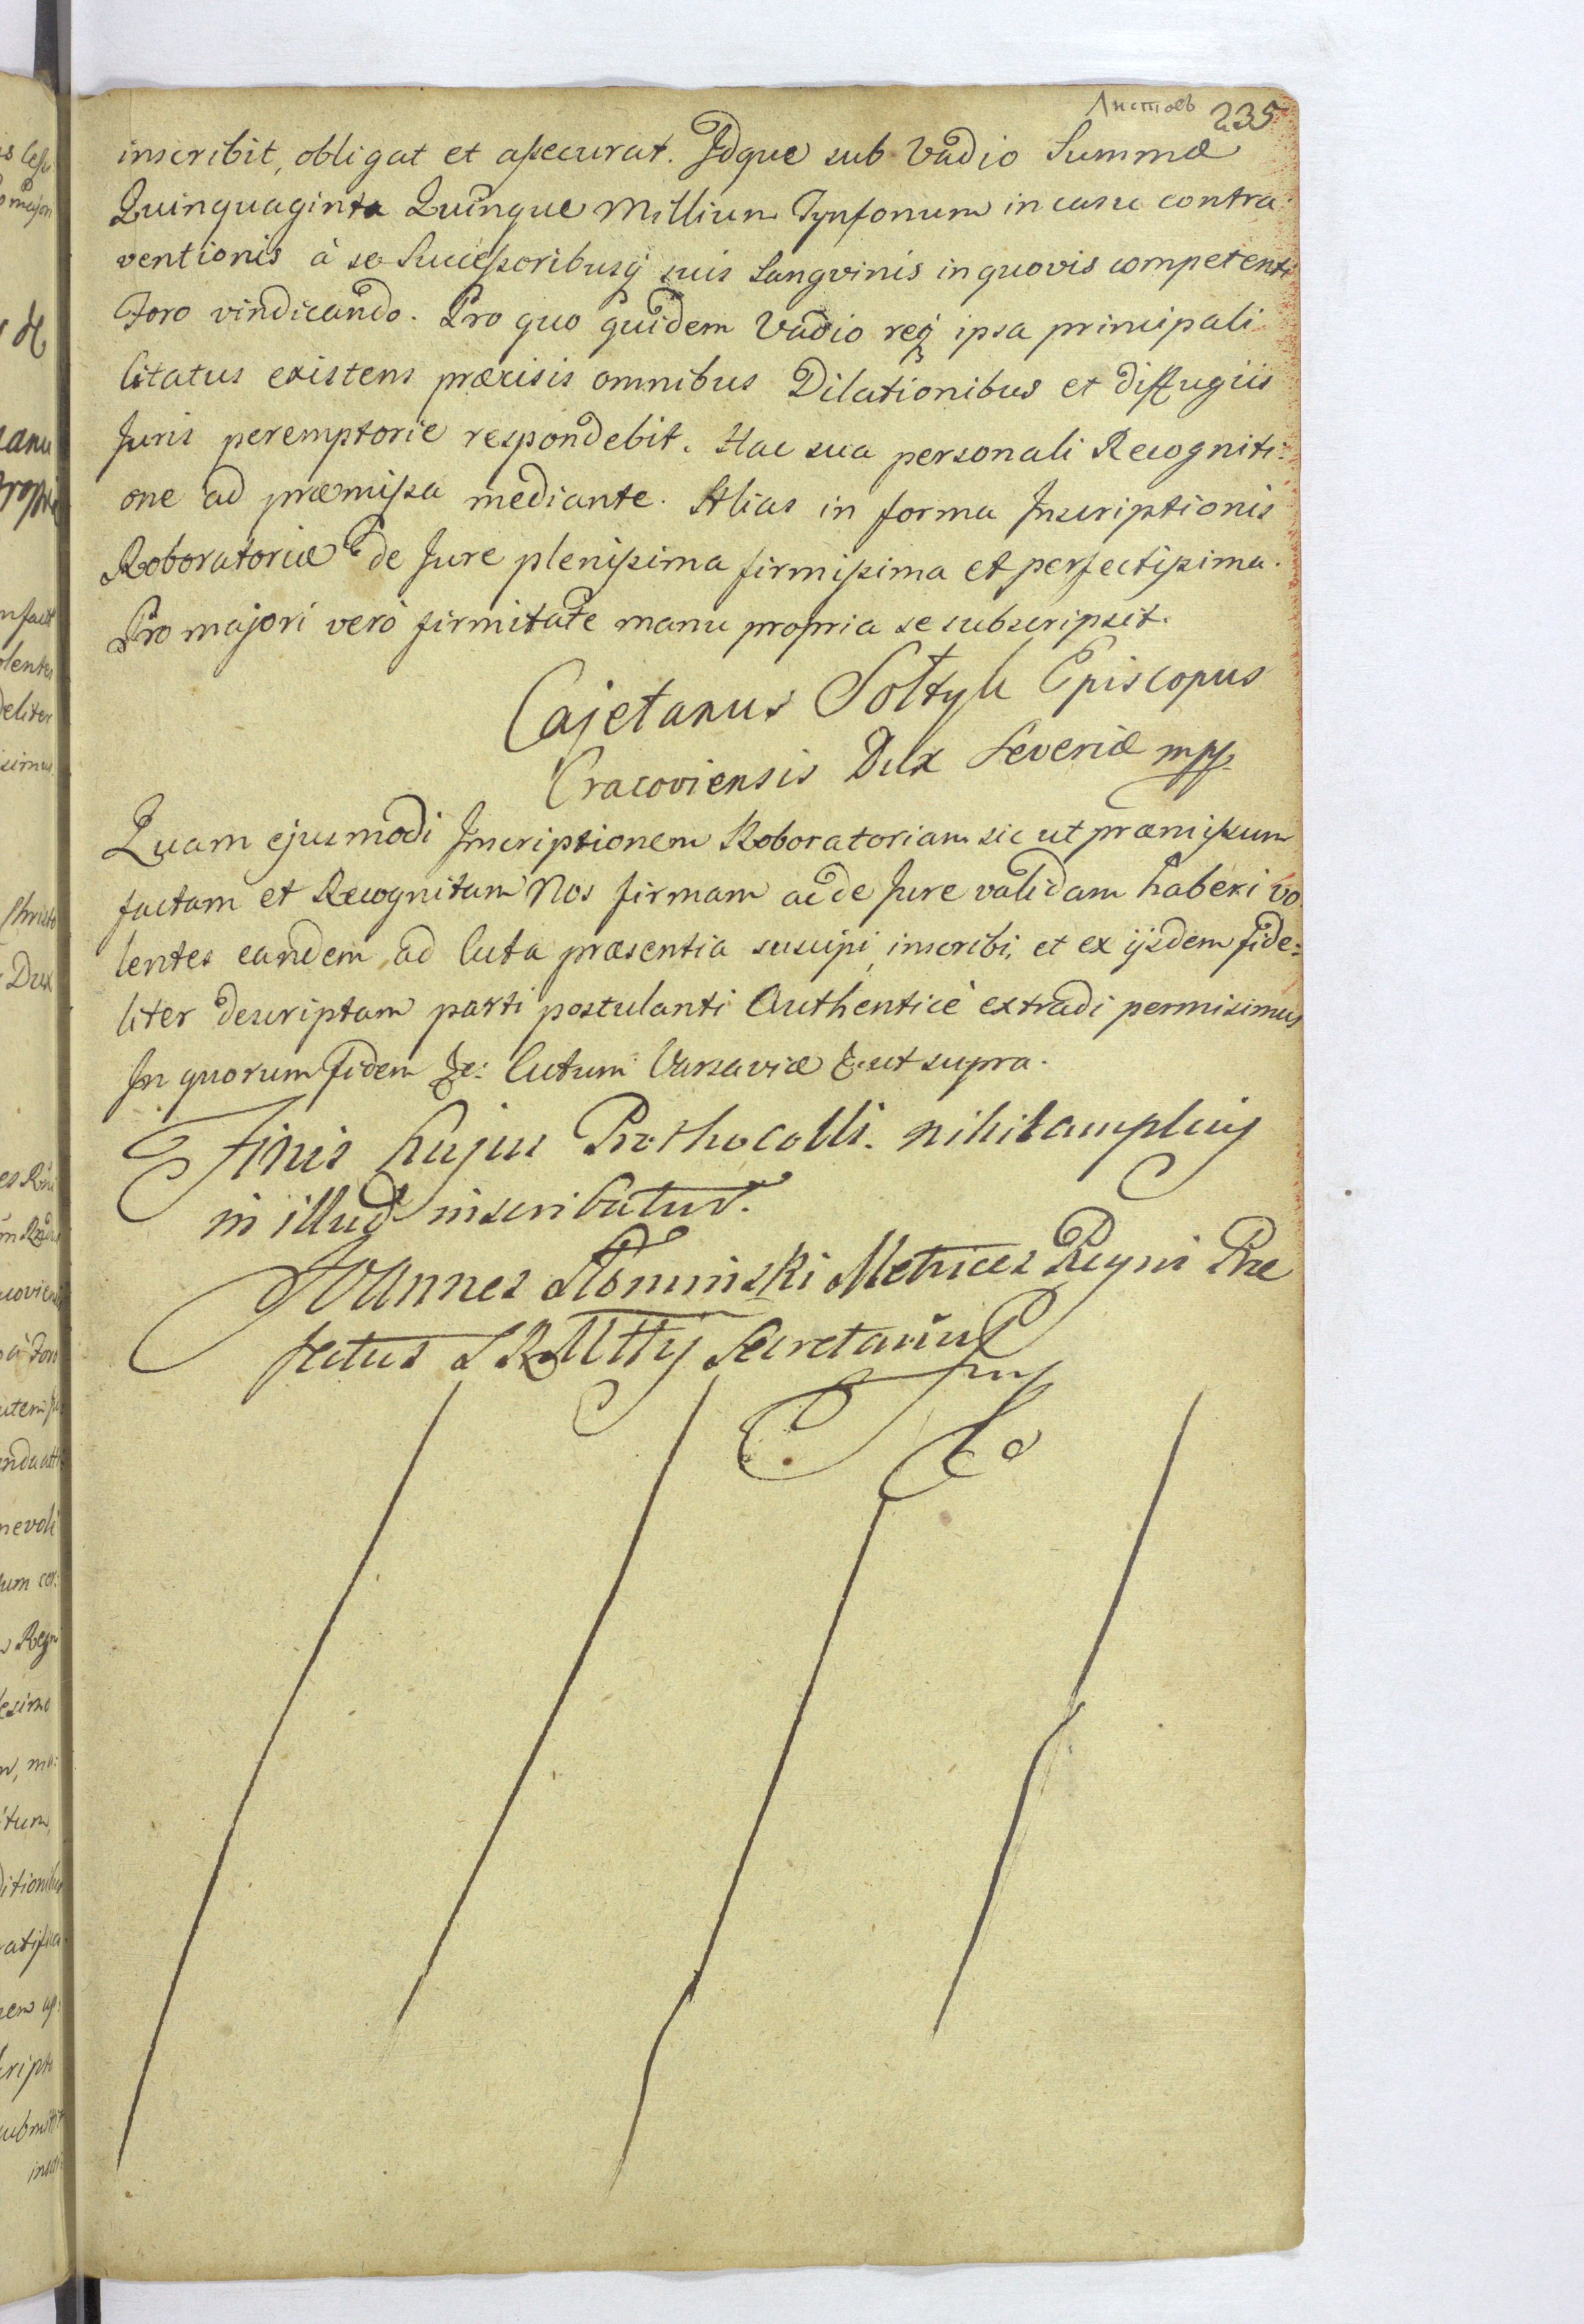 Листовъ 235
inscribit, obligat et assecurat. Idque sub Vadio Summæ
Quinquaginta Quinque Millium Tynfonum in casu contra-
ventionis à se Successoribusq suis Sangvinis in quovis competenti
Foro vindicando. Pro quo quidem Vadio req ipsa principali
litatus existens præcisis omnibus Dilationibus et diffugiis
Juris peremptorie respondebit. Hac sua personali Recogniti:
one ad præmissa mediante. Alias in forma Inscriptionis
Roboratoriæ de Jure plenissima firmissima et perfectissima.
Pro majori verò firmitate manu propria se subscripsit.
Cajetanus Sołtyk Episcopus
Cracoviensis Dux Severiæ mpp.
Quam ejusmodi Inscriptionem Roboratoriam sic ut præmissum
factam et Recognitam Nos firmam ac de Jure validam haberi vo
lentes eandem ad Acta præsentia suscipi, inscribi, et ex ijsdem fide:
liter descriptam parti postulanti Authenticè extradi permisimus
In quorum Fidem &c: Actum Varsaviæ &c ut supra.
Finis hujus Prothocolli. nihil amplius
in illud inscribatur.
Joannes Słominski Metrices Regni Præ
fectus S R Mtty Secretarius
mp